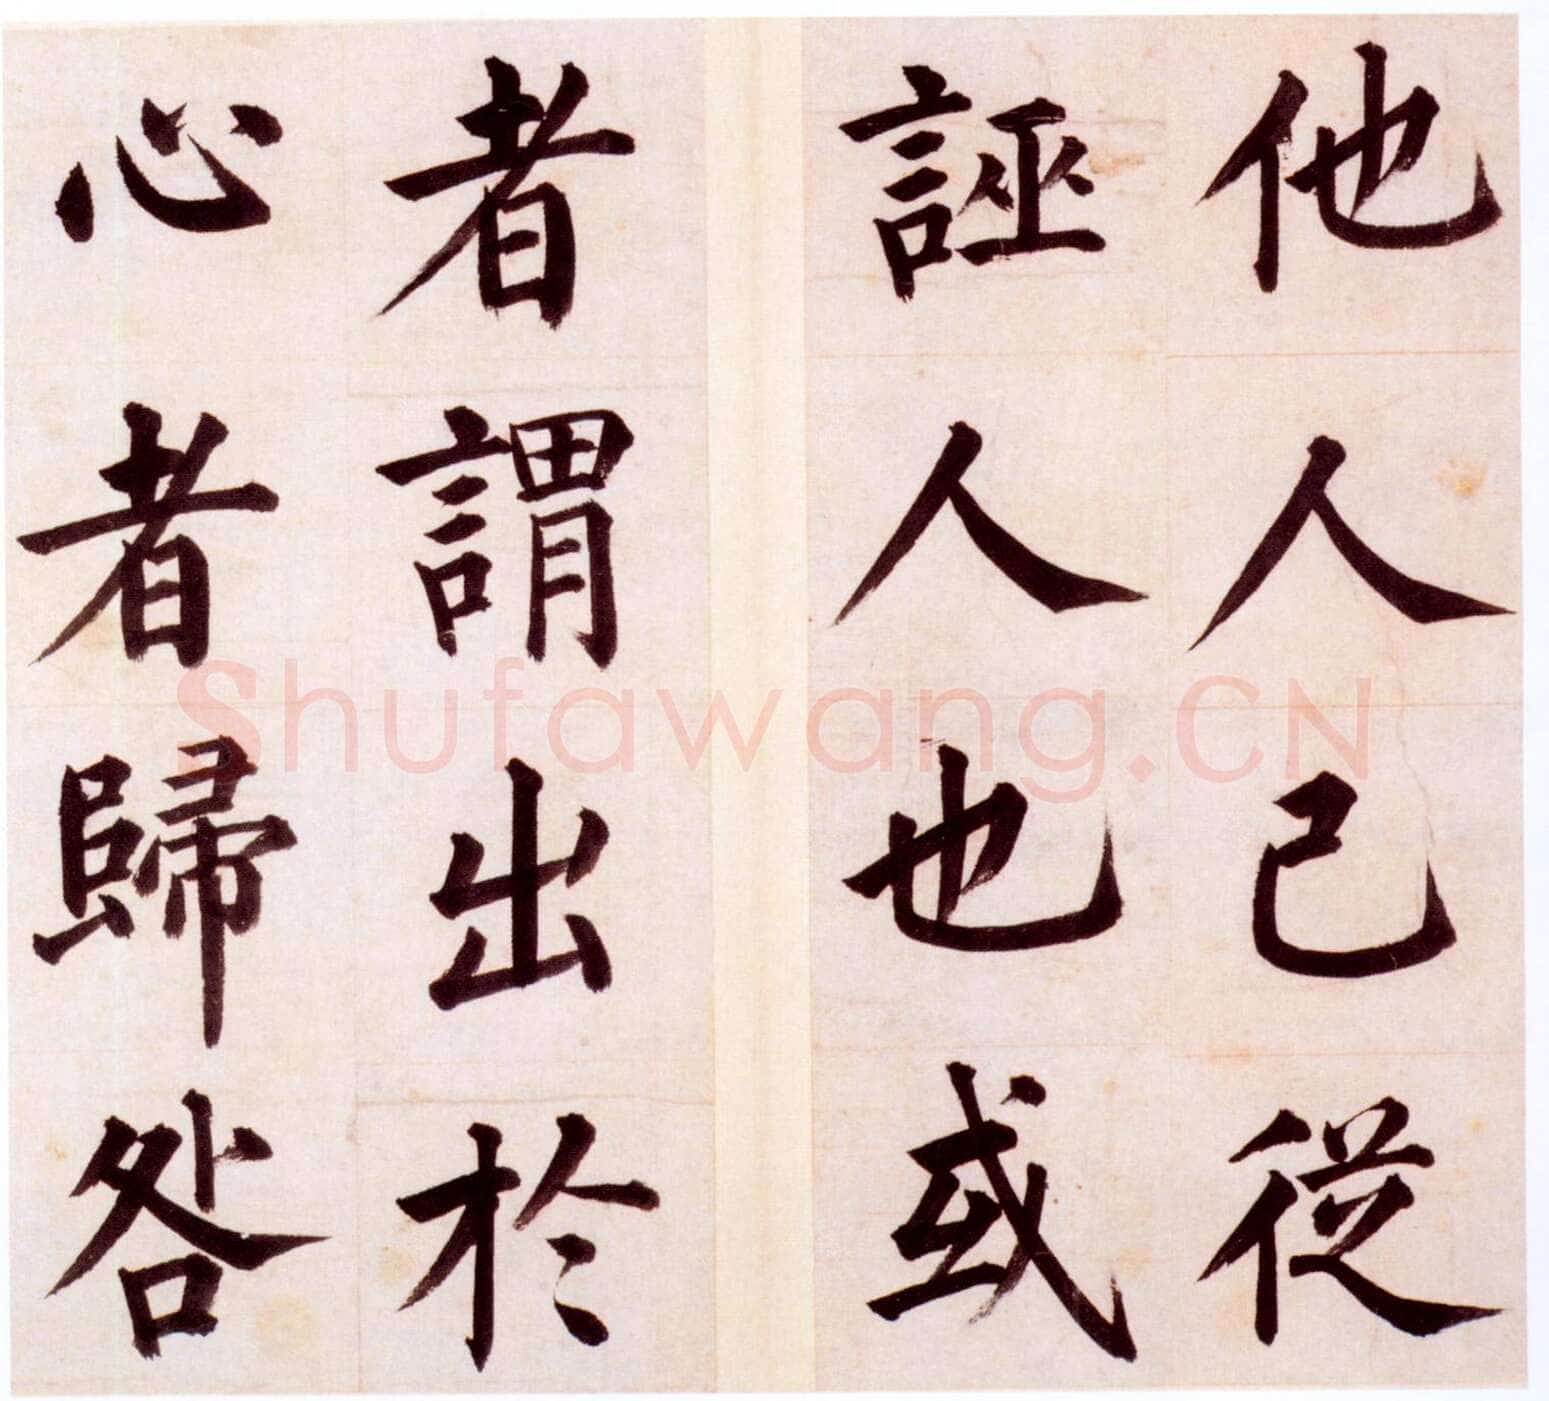 他人己從
誣人也或
者謂出於
心者歸咎
Shufawang.CN